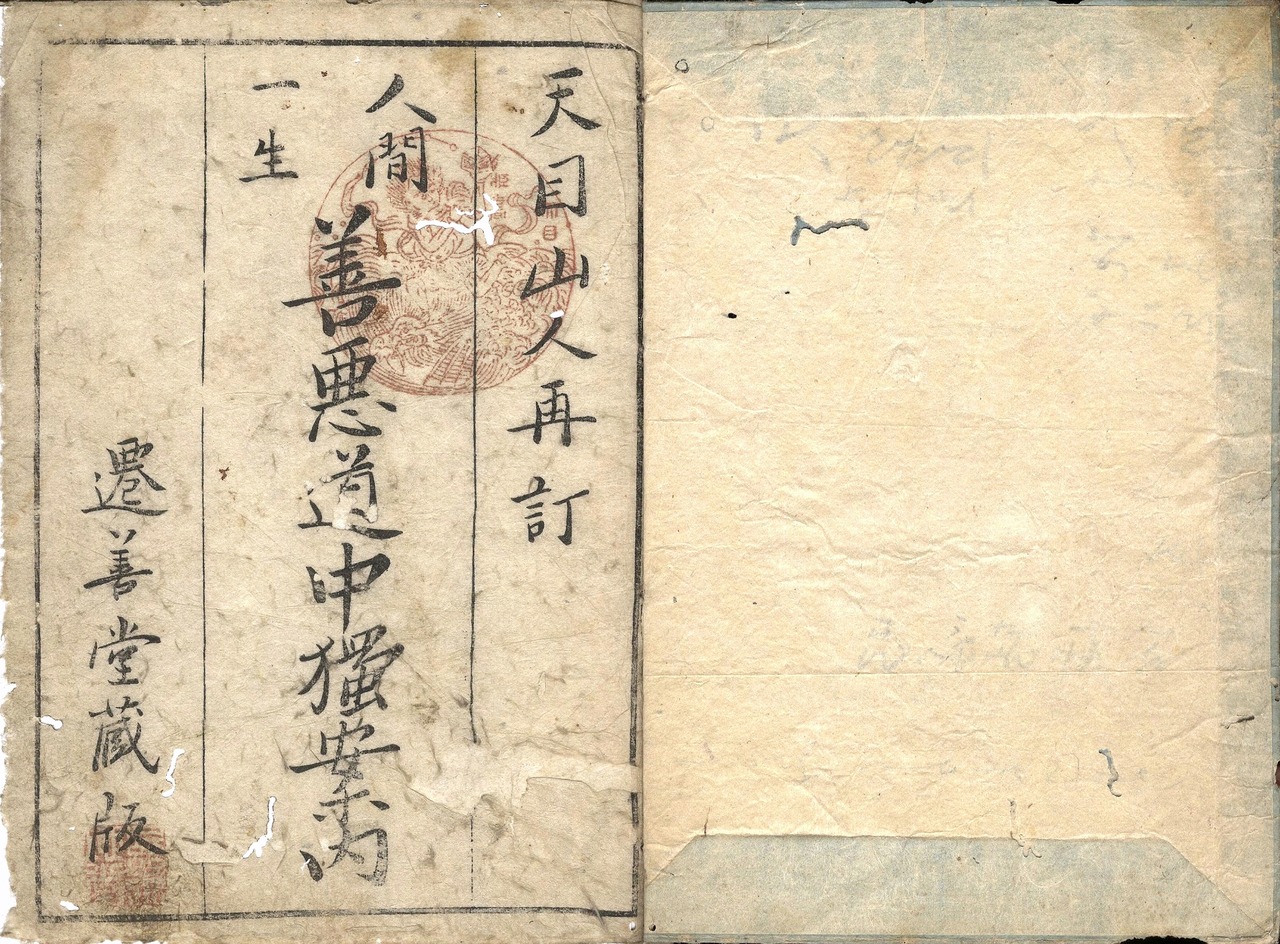 天目山人再訂
人間
一生
善悪道中獨案内
遷善堂蔵版